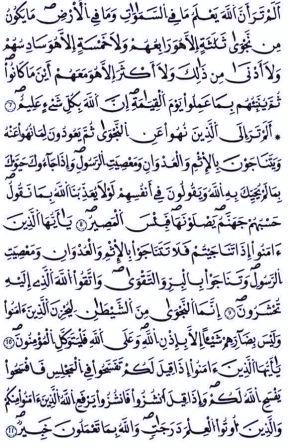 أَلَمْ تَرَ أَنَّ اللَّهَ يَعْلَمُ مَا فِي السَّمَاوَاتِ وَمَا فِي الْأَرْضِ مَا يَكُونُ
مِن نَّجْوَى ثَلَاثَةٍ إِلَّا هُوَ رَابِعُهُمْ وَلَا خَمْسَةٍ إِلَّا هُوَ سَادِسُهُمْ
وَلَا أَدْنَى مِن ذَلِكَ وَلَا أَكْثَرَ إِلَّا هُوَ مَعَهُمْ أَيْنَ مَا كَانُوا
ثُمَّ يُنَبِّئُهُم بِمَا عَمِلُوا يَوْمَ الْقِيَامَةِ إِنَّ اللَّهَ بِكُلِّ شَيْءٍ عَلِيمٌ ٧
أَلَمْ تَرَ إِلَى الَّذِينَ نُهُوا عَنِ النَّجْوَى ثُمَّ يَعُودُونَ لِمَا نُهُوا عَنْهُ
وَيَتَنَاجَوْنَ بِالْإِثْمِ وَالْعُدْوَانِ وَمَعْصِيَتِ الرَّسُولِ وَإِذَا جَاءُوكَ حَيَّوْكَ
بِمَا لَمْ يُحَيِّكَ بِهِ اللَّهُ وَيَقُولُونَ فِي أَنفُسِهِمْ لَوْلَا يُعَذِّبُنَا اللَّهُ بِمَا نَقُولُ
حَسْبُهُمْ جَهَنَّمُ يَصْلَوْنَهَا فَبِئْسَ الْمَصِيرُ ٨ يَا أَيُّهَا الَّذِينَ
آمَنُوا إِذَا تَنَاجَيْتُمْ فَلَا تَتَنَاجَوْا بِالْإِثْمِ وَالْعُدْوَانِ وَمَعْصِيَتِ
الرَّسُولِ وَتَنَاجَوْا بِالْبِرِّ وَالتَّقْوَى وَاتَّقُوا اللَّهَ الَّذِي إِلَيْهِ
تُحْشَرُونَ ٩ إِنَّمَا النَّجْوَى مِنَ الشَّيْطَانِ لِيَحْزُنَ الَّذِينَ آمَنُوا
وَلَيْسَ بِضَارِّهِمْ شَيْئًا إِلَّا بِإِذْنِ اللَّهِ وَعَلَى اللَّهِ فَلْيَتَوَكَّلِ الْمُؤْمِنُونَ ١٠
يَا أَيُّهَا الَّذِينَ آمَنُوا إِذَا قِيلَ لَكُمْ تَفَسَّحُوا فِي الْمَجَالِسِ فَافْسَحُوا
يَفْسَحِ اللَّهُ لَكُمْ وَإِذَا قِيلَ انشُزُوا فَانشُزُوا يَرْفَعِ اللَّهُ الَّذِينَ آمَنُوا مِنكُمْ
وَالَّذِينَ أُوتُوا الْعِلْمَ دَرَجَاتٍ وَاللَّهُ بِمَا تَعْمَلُونَ خَبِيرٌ ١١